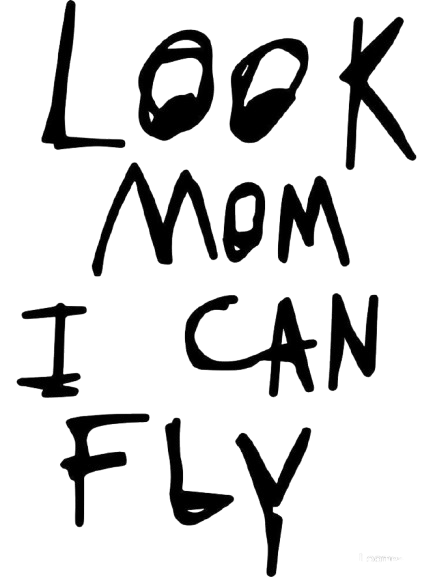 LOOK
MOM
I CAN
FLY